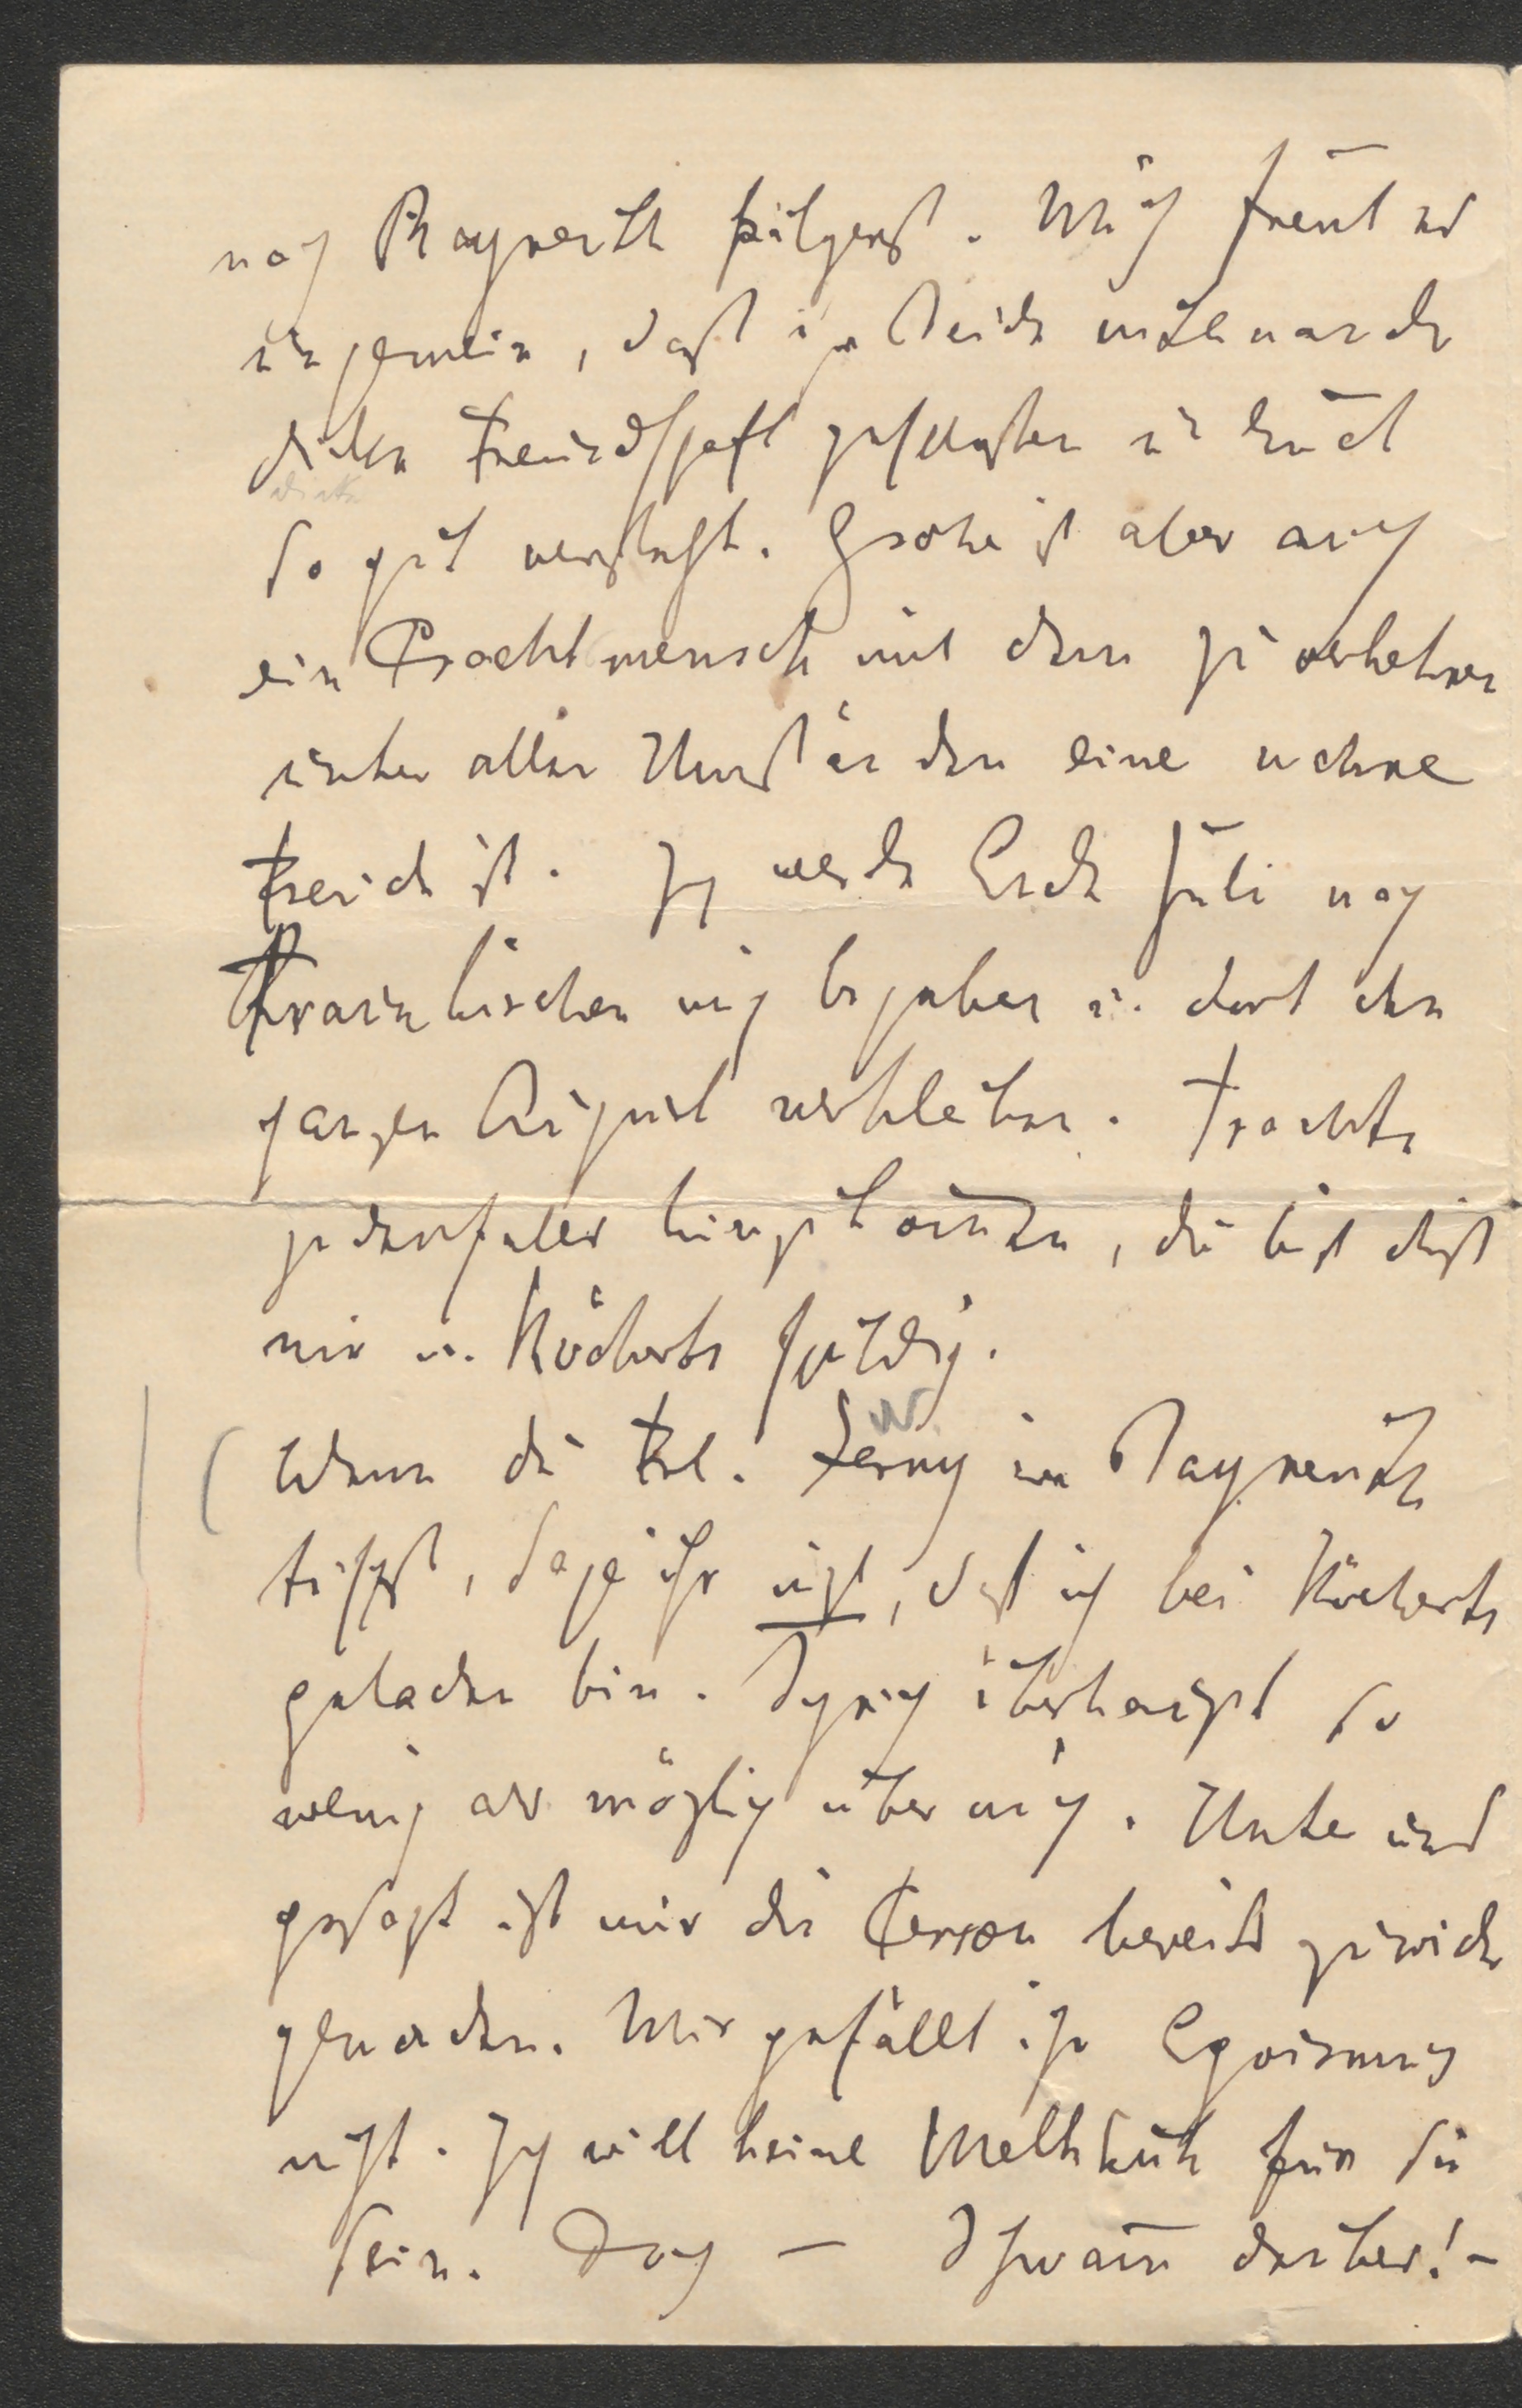 nach Bayreuth pilgerst. Mich freut es
ungemein, daß ihr Beide miteinander
dicke Freundschaft geschlossen u Euch
dicke
so gut versteht. Grohe ist aber auch
ein Prachtmensch mit dem zu verkehren
unter allen Umständen eine wahre
Freude ist. Ich werde Ende Juli nach
Traunkirchen mich begeben u. dort den
ganzen August verbleiben. Trachte
jedenfalls hinzukommen, du bist dieß
mir u. Köcherts schuldig.
Wenn du Frl. Zerny in Bayreuth
triffst, sage ihr nicht, daß ich bei Köcherts
geladen bin. Sprich überhaupt so
wenig als möglich über mich. Unter uns
gesagt ist mir die Person bereits zuwider
geworden. Mir gefällt ihr Egoismus
nicht. Ich will keine Melkkuh für sie
sein. Doch – Schwamm darüber! –